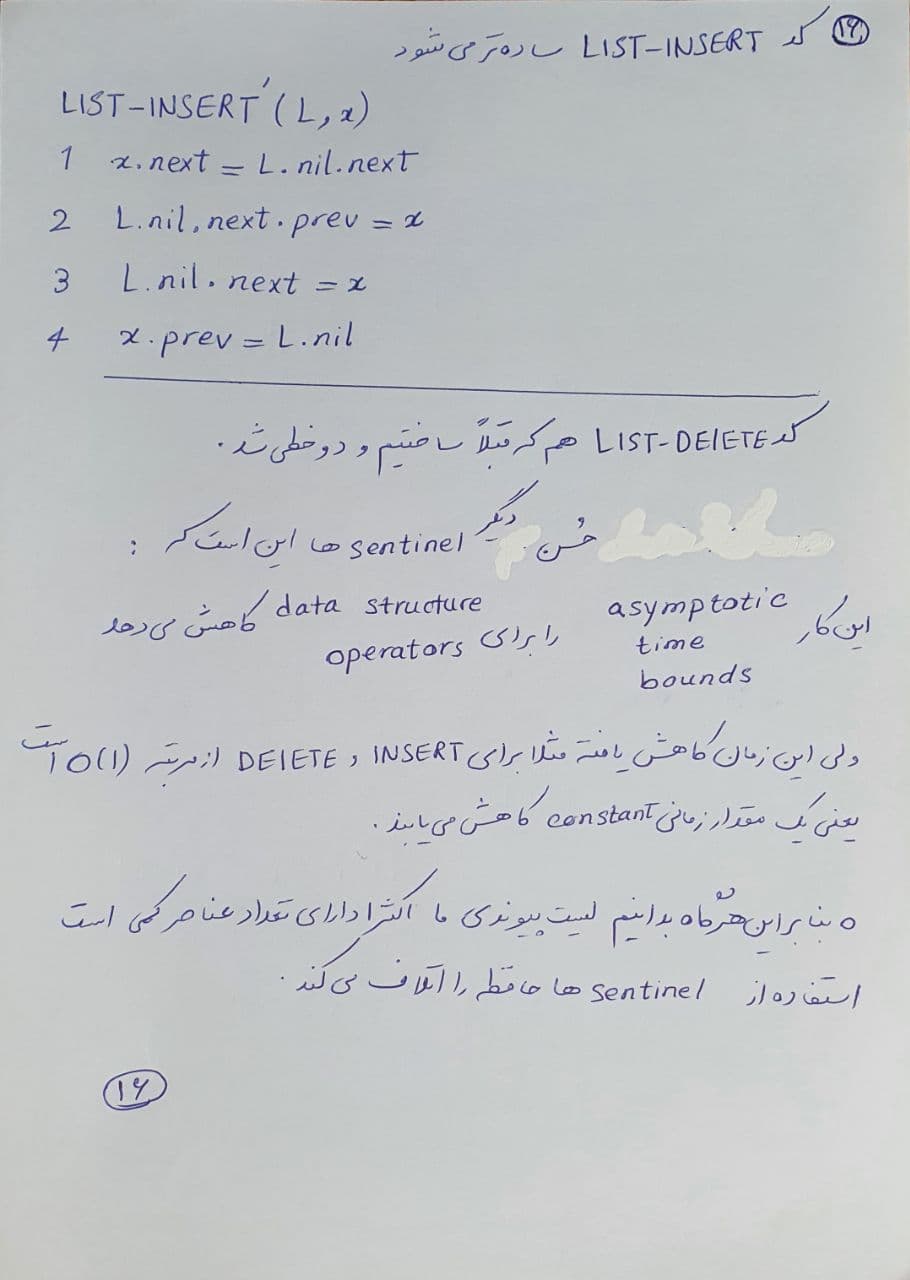 ۱۶ کد LIST-INSERT ساده‌تر می‌شود
LIST-INSERT′(L,x)
1 x.next = L.nil.next
2 L.nil.next.prev = x
3 L.nil.next = x
4 x.prev = L.nil
کد LIST-DElETE هم که قبلاً ساختیم و دو خطی شد.
حُسن دیگر sentinel ها این است که :
این کار asymptotic time bounds را برای data structure operators کاهش می‌دهد
ولی این زمان کاهش یافته مثلا برای INSERT و DElETE از مرتبه O(1) است
یعنی یک مقدار زمانی constant کاهش می‌یابند.
بنابراین هرگاه بدانیم لیست پیوندی ما اکثرا دارای تعداد عناصر کمی است
استفاده از sentinel ها حافظه را اتلاف می‌کند.
۱۶